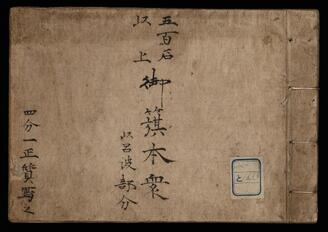 五百石
以上
御籏本衆
以呂波部分
四分一正質写之
と